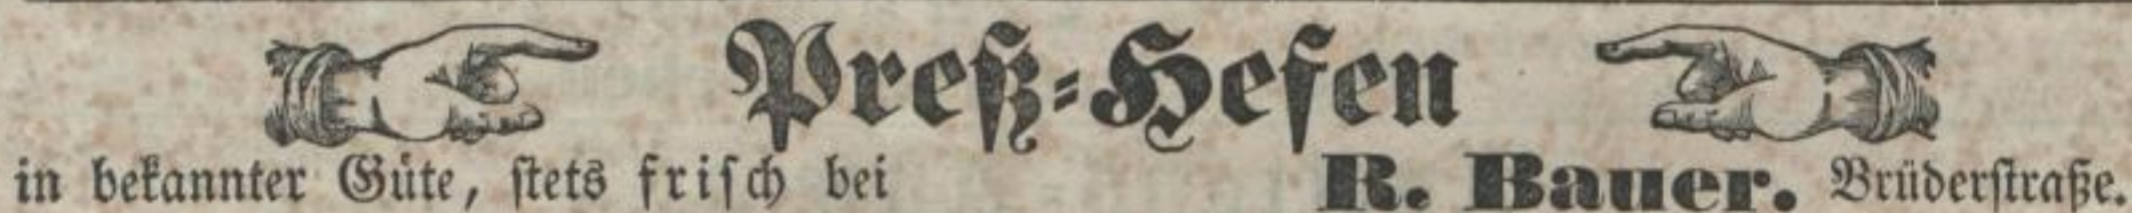 Preß-Hefen
in bekannter Güte, stets frisch bei R. Bauer. Brüderstraße.